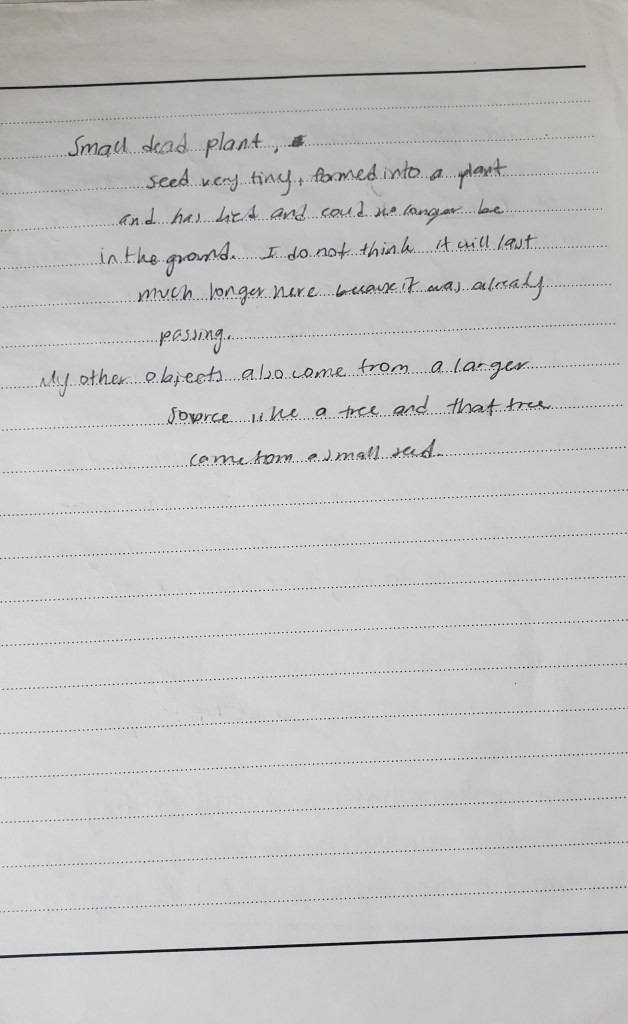 Small dead plant,
seed very tiny, formed into a plant
and has died and could no longer be
in the ground. I do not think it will last
much longer here because it was already
passing.
My other objects also came from a larger
source like a tree and that tree
came from a small seed.